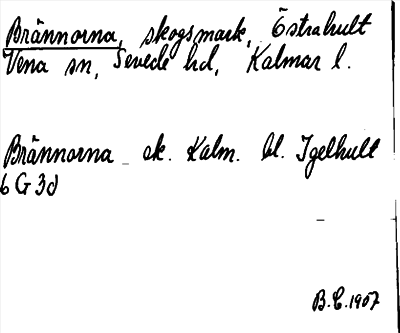 Brännorna, skogsmark, Östrahult
Vena sn, Sevede hd, Kalmar l.
Brännorna ek. Kalm. bl. Igelhult
6 G 3d
B.C. 1907